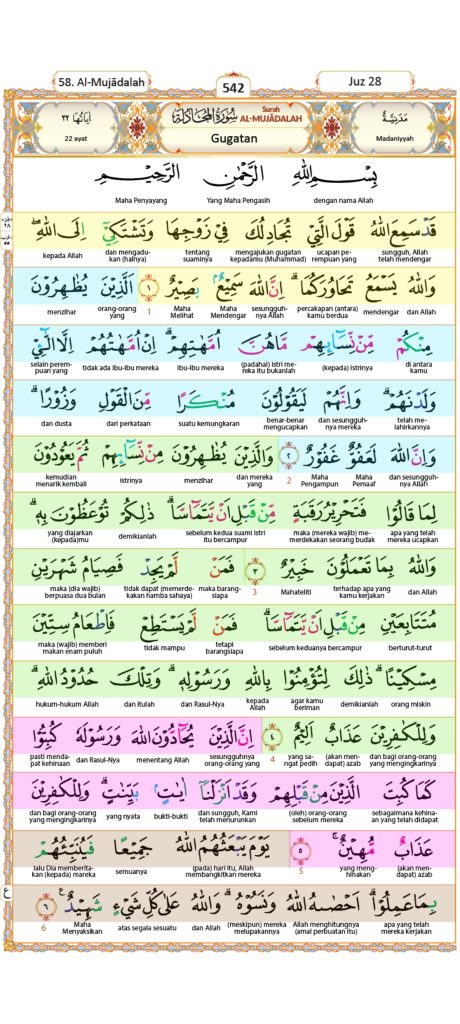 58. Al-Mujādalah
542
Juz 28
مَدَنِيَّةٌ
Madaniyyah
سُوْرَةُ الْمُجَادَلَةِ
Surah AL-MUJĀDALAH
Gugatan
اٰيَاتُهَا ٢٢
22 ayat
بِسْمِ اللّٰهِ الرَّحْمٰنِ الرَّحِيْمِ
dengan nama Allah Yang Maha Pengasih Maha Penyayang
قَدْ سَمِعَ اللّٰهُ قَوْلَ الَّتِيْ تُجَادِلُكَ فِيْ زَوْجِهَا وَتَشْتَكِيْٓ اِلَى اللّٰهِ ۖ
sungguh, Allah telah mendengar ucapan perempuan yang mengajukan gugatan kepadamu (Muhammad) tentang suaminya dan mengadukan (halnya) kepada Allah
وَاللّٰهُ يَسْمَعُ تَحَاوُرَكُمَا ۗ اِنَّ اللّٰهَ سَمِيْعٌ ۢ بَصِيْرٌ ١ اَلَّذِيْنَ يُظٰهِرُوْنَ
dan Allah mendengar percakapan (antara) kamu berdua sesungguhnya Allah Maha Mendengar Maha Melihat 1 orang-orang yang menzihar
مِنْكُمْ مِّنْ نِّسَاۤىِٕهِمْ مَّا هُنَّ اُمَّهٰتِهِمْ ۗ اِنْ اُمَّهٰتُهُمْ اِلَّا الّٰـِٕۤيْ
di antara kamu (kepada) istrinya (padahal) istri mereka itu bukanlah ibu-ibu mereka tidak ada ibu-ibu mereka selain perempuan yang
وَلَدْنَهُمْ ۗ وَاِنَّهُمْ لَيَقُوْلُوْنَ مُنْكَرًا مِّنَ الْقَوْلِ وَزُوْرًا ۗ
telah melahirkannya dan sesungguhnya mereka benar-benar mengucapkan suatu kemungkaran dari perkataan dan dusta
وَاِنَّ اللّٰهَ لَعَفُوٌّ غَفُوْرٌ ٢ وَالَّذِيْنَ يُظٰهِرُوْنَ مِنْ نِّسَاۤىِٕهِمْ ثُمَّ يَعُوْدُوْنَ
dan sesungguhnya Allah Maha Pemaaf Maha Pengampun 2 dan mereka yang menzihar istrinya kemudian menarik kembali
لِمَا قَالُوْا فَتَحْرِيْرُ رَقَبَةٍ مِّنْ قَبْلِ اَنْ يَّتَمَاۤسَّا ۗ ذٰلِكُمْ تُوْعَظُوْنَ بِهٖ ۗ
apa yang telah mereka ucapkan maka (mereka wajib) memerdekakan seorang budak sebelum kedua suami istri itu bercampur demikianlah yang diajarkan (kepada)mu
وَاللّٰهُ بِمَا تَعْمَلُوْنَ خَبِيْرٌ ٣ فَمَنْ لَّمْ يَجِدْ فَصِيَامُ شَهْرَيْنِ
dan Allah terhadap apa yang kamu kerjakan Mahateliti 3 maka barangsiapa tidak dapat (memerdekakan hamba sahaya) maka (dia wajib) berpuasa dua bulan
مُتَتَابِعَيْنِ مِنْ قَبْلِ اَنْ يَّتَمَاۤسَّا ۗ فَمَنْ لَّمْ يَسْتَطِعْ فَاِطْعَامُ سِتِّيْنَ
berturut-turut sebelum keduanya bercampur tetapi barangsiapa tidak mampu maka (wajib) memberi makan enam puluh
مِسْكِيْنًا ۗ ذٰلِكَ لِتُؤْمِنُوْا بِاللّٰهِ وَرَسُوْلِهٖ ۗ وَتِلْكَ حُدُوْدُ اللّٰهِ ۗ
orang miskin demikianlah agar kamu beriman kepada Allah dan Rasul-Nya dan itulah hukum-hukum Allah
وَلِلْكٰفِرِيْنَ عَذَابٌ اَلِيْمٌ ٤ اِنَّ الَّذِيْنَ يُحَاۤدُّوْنَ اللّٰهَ وَرَسُوْلَهٗ كُبِتُوْا
dan bagi orang-orang yang mengingkarinya (akan mendapat) azab yang sangat pedih 4 sesungguhnya orang-orang yang menentang Allah dan Rasul-Nya pasti mendapat kehinaan
كَمَا كُبِتَ الَّذِيْنَ مِنْ قَبْلِهِمْ وَقَدْ اَنْزَلْنَآ اٰيٰتٍۢ بَيِّنٰتٍ ۗ وَلِلْكٰفِرِيْنَ
sebagaimana kehinaan yang telah didapat (oleh) orang-orang sebelum mereka dan sungguh, Kami telah menurunkan bukti-bukti yang nyata dan bagi orang-orang yang mengingkarinya
عَذَابٌ مُّهِيْنٌ ۚ ٥ يَوْمَ يَبْعَثُهُمُ اللّٰهُ جَمِيْعًا فَيُنَبِّئُهُمْ
(akan mendapat) azab yang menghinakan 5 (pada) hari itu, Allah membangkitkan mereka semuanya lalu Dia memberitakan (kepada) mereka
بِمَا عَمِلُوْا ۗ اَحْصٰىهُ اللّٰهُ وَنَسُوْهُ ۗ وَاللّٰهُ عَلٰى كُلِّ شَيْءٍ شَهِيْدٌ ࣖ ٦
apa yang telah mereka kerjakan Allah menghitungnya (amal perbuatan itu) (meskipun) mereka melupakannya dan Allah atas segala sesuatu Maha Menyaksikan 6
ع